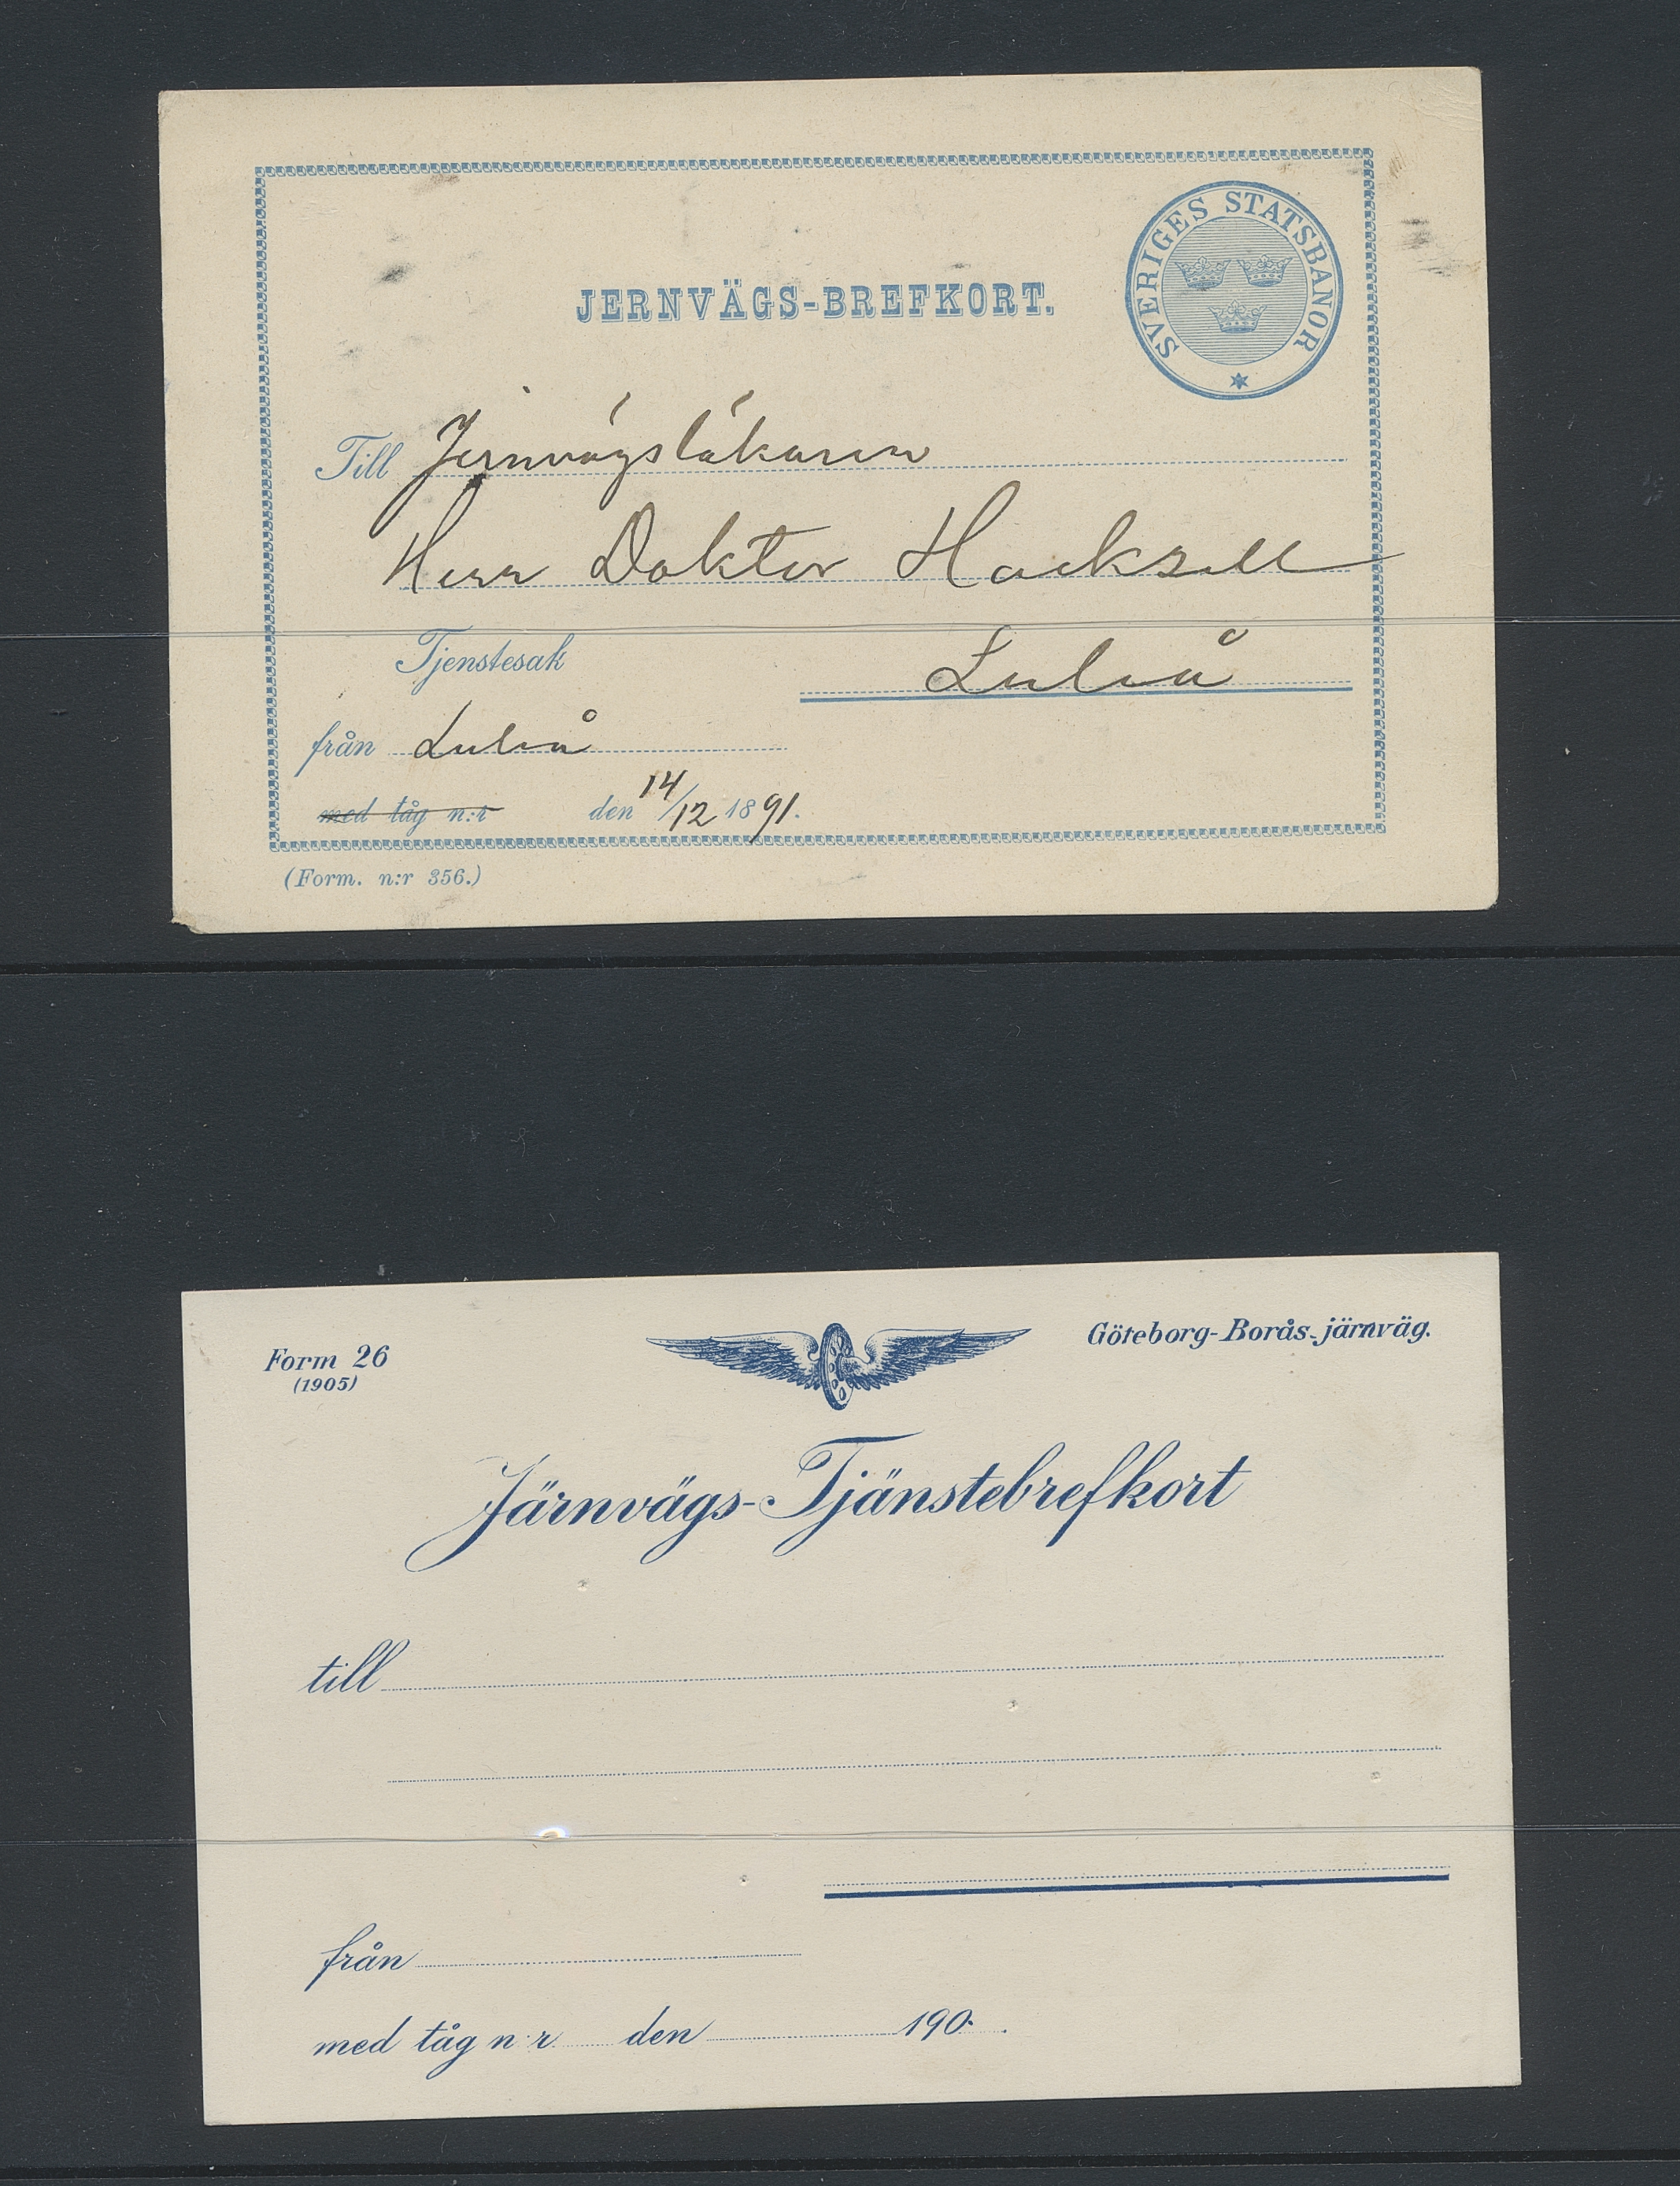 SVERIGES STATSBANOR
JERNVÄGS-BREFKORT.
Till Jernvägsläkaren
Herr Doktor Hacksell
Tjenstesak Luleå
från Luleå
med tåg n:r den 14/12 1891.
(Form. n:r 356.)
Form 26 Göteborg-Borås-järnväg.
(1905)
Järnvägs-Tjänstebrefkort
till
från
med tåg n:r den 190 .